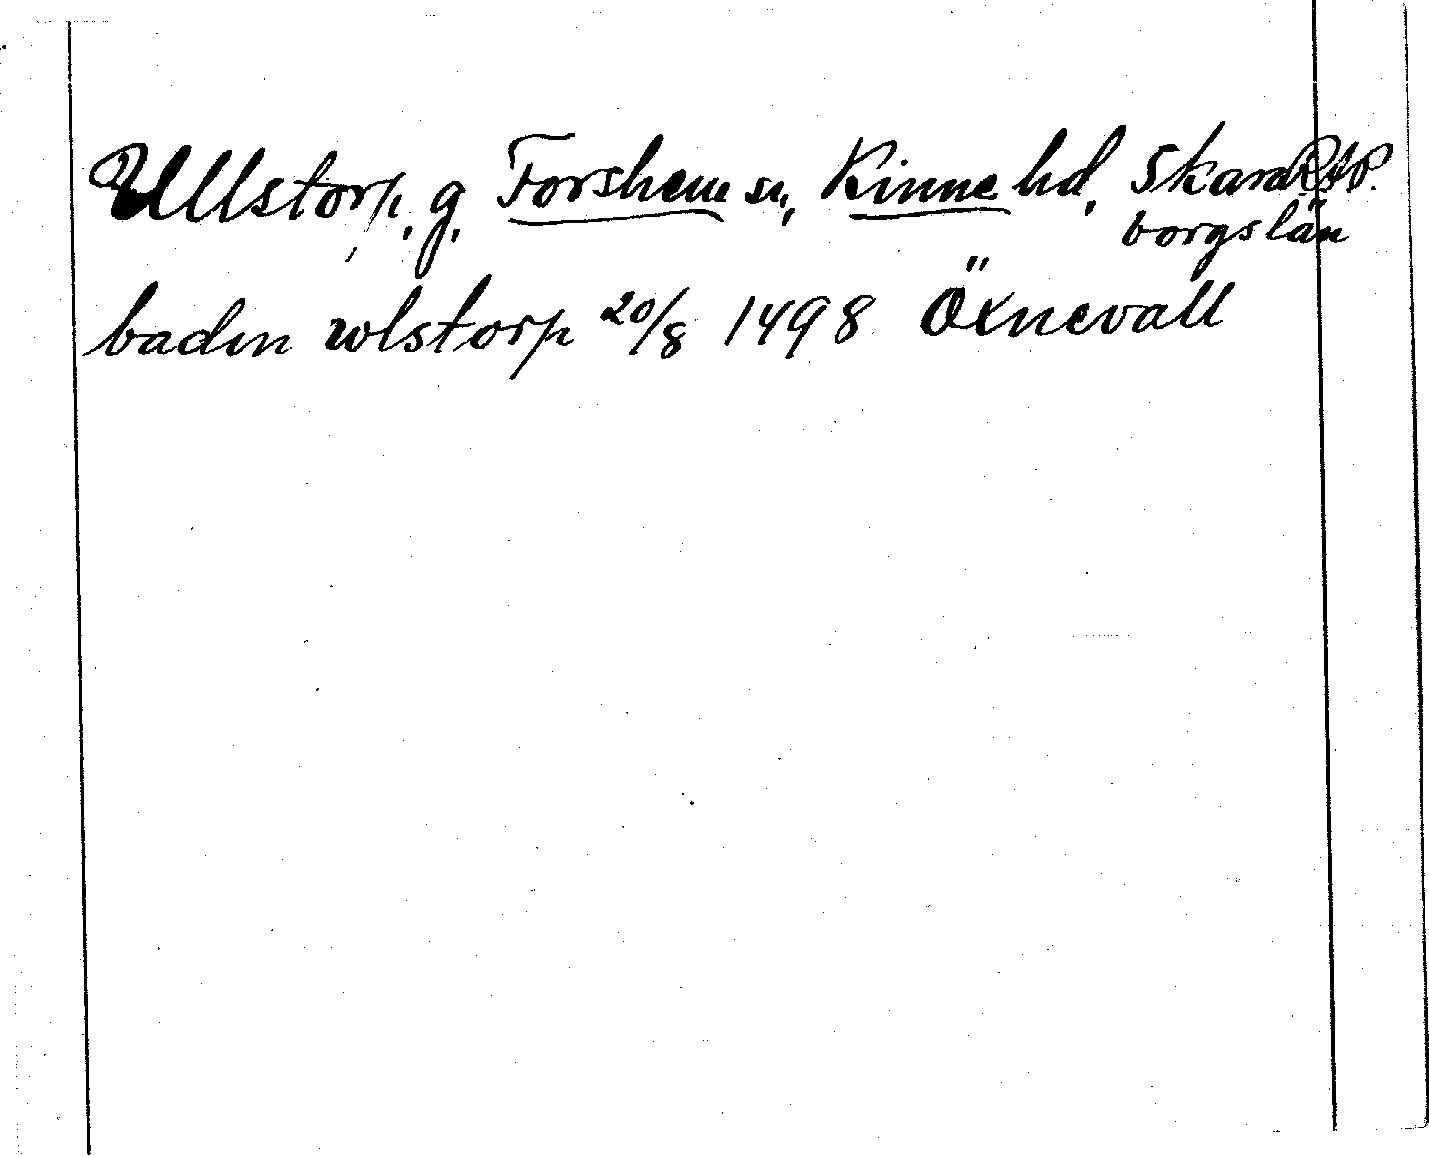 Ullstorp, g, Forshem sn, Kinne hd, Skara
borgs län
badin wlstorp 20/8 1498 Öxnevall